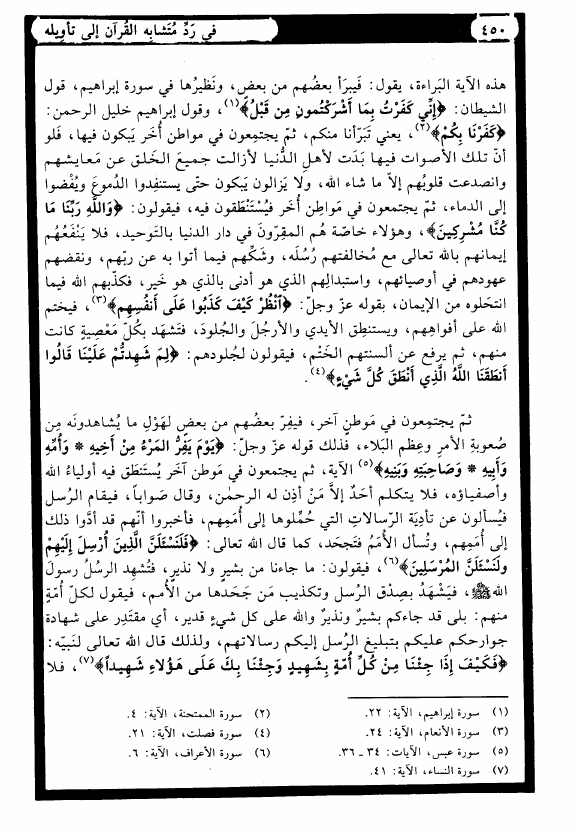 ٤٥٠
في رَدِّ مُتَشابِه القُرآن إلى تأوِيله
هذه الآية البَراءة، يقول: فَيبرَأ بعضُهم من بعض، ونَظيرُها في سورة إبراهيم، قول
الشيطان: ﴿إِنِّي كَفَرْتُ بِمَا أَشْرَكْتُمونِ مِن قَبْلُ﴾(١)، وقول إبراهيم خليل الرحمن:
﴿كَفَرْنَا بِكُمْ﴾(٢)، يعني تَبَرّأنا منكم، ثمّ يجتمِعون في مواطن أُخَر يَبكون فيها، فلو
أنّ تلك الأصوات فيها بَدَت لأهلِ الدُّنيا لأزالت جميعَ الخَلق عن مَعايشهم
وانصدعت قلوبُهم إلاّ ما شاء الله، ولا يَزالون يَبكون حتّى يستنفِدوا الدُموعَ ويُفْضوا
إلى الدماء، ثمّ يجتمعون في مَواطِن أُخر فيُسْتَنْطَقون فيه، فيقولون: ﴿وَاللَّهِ رَبِّنَا مَا
كُنَّا مُشْرِكِينَ﴾، وهؤلاء خاصّة هُم المقِرّونَ في دار الدنيا بالتَوحيد، فلا يَنْفَعُهُم
إيمانهم بالله تعالى مع مُخالفتهم رُسُلَه، وشَكِّهم فيما أتوا به عن ربّهم، ونقضِهم
عهودهم في أوصيائهم، واستبدالِهم الذي هو أدنى بالذي هو خَير، فكذّبهم الله فيما
انتحَلوه من الإيمان، بقوله عزّ وجلّ: ﴿أَنْظُرْ كَيْفَ كَذَبُوا عَلَى أَنفُسِهِم﴾(٣)، فيختم
الله على أفواهِهم، ويستنطِق الأيدي والأرجُلَ والجُلودَ، فتَشهَد بكُلّ مَعْصِيةٍ كانت
منهم، ثم يرفع عن ألسنتهم الخَتْم، فيقولون لجُلودهم: ﴿لِمَ شَهِدتُّمْ عَلَيْنَا قَالُوا
أَنطَقَنَا اللَّهُ الَّذِي أَنْطَقَ كُلَّ شَيْءٍ﴾(٤).
ثمّ يجتمِعون في مَوطنٍ آخر، فيفِرّ بعضُهم من بعضٍ لهَوْلِ ما يُشاهدونَه مِن
صُعوبةِ الأمرِ وعِظم البَلاء، فذلك قوله عزّ وجلّ: ﴿يَوْمَ يَفِرُّ المَرْءُ مِنْ أَخِيهِ * وَأُمِّهِ
وَأَبِيهِ * وَصَاحِبَتِهِ وَبَنِيهِ﴾(٥) الآية، ثم يجتمعون في موطن آخَر يُستَنطَق فيه أولياءُ الله
وأصفياؤه، فلا يتكلم أحَدٌ إلاَّ مَنْ أذِن له الرحمٰن، وقال صَواباً، فيقام الرُسل
فيُسألون عن تأدِيَة الرِسالاتِ التي حُمِّلوها إلى أُمَمِهم، فأخبروا أنّهم قد أدَّوا ذلك
إلى أُمَمِهم، وتُسأل الأُمَمُ فتَجحَد، كما قال الله تعالى: ﴿فَلَنَسْئَلَنَّ الَّذِينَ أُرْسِلَ إِلَيْهِمْ
ولَنَسْئَلَنَّ المُرْسَلِينَ﴾(٦)، فيقولون: ما جاءنا من بشيرٍ ولا نذيرٍ، فتُشهِد الرسُلُ رسولَ
اللهﷺ، فيَشْهَدُ بصِدْق الرسل وتكذيب مَن جَحَدها من الأمم، فيقول لكلّ أُمّةٍ
منهم: بلى قد جاءكم بشيرٌ ونذيرٌ والله على كل شيءٍ قدير، أي مقتَدِر على شهادة
جوارحكم عليكم بتبليغ الرُسل إليكم رسالاتهم، ولذلك قال الله تعالى لنَبيّه:
﴿فَكَيْفَ إِذَا جِئْنَا مِنْ كُلِّ أُمَّةٍ بِشَهِيدٍ وَجِئْنَا بِكَ عَلَى هَؤُلاءِ شَهِيداً﴾(٧)، فلا
(١) سورة إبراهيم، الآية: ٢٢.
(٢) سورة الممتحنة، الآية: ٤.
(٣) سورة الأنعام، الآية: ٢٤.
(٤) سورة فصلت، الآية: ٢١.
(٥) سورة عبس، الآيات: ٣٤ ـ ٣٦.
(٦) سورة الأعراف، الآية: ٦.
(٧) سورة النساء، الآية: ٤١.